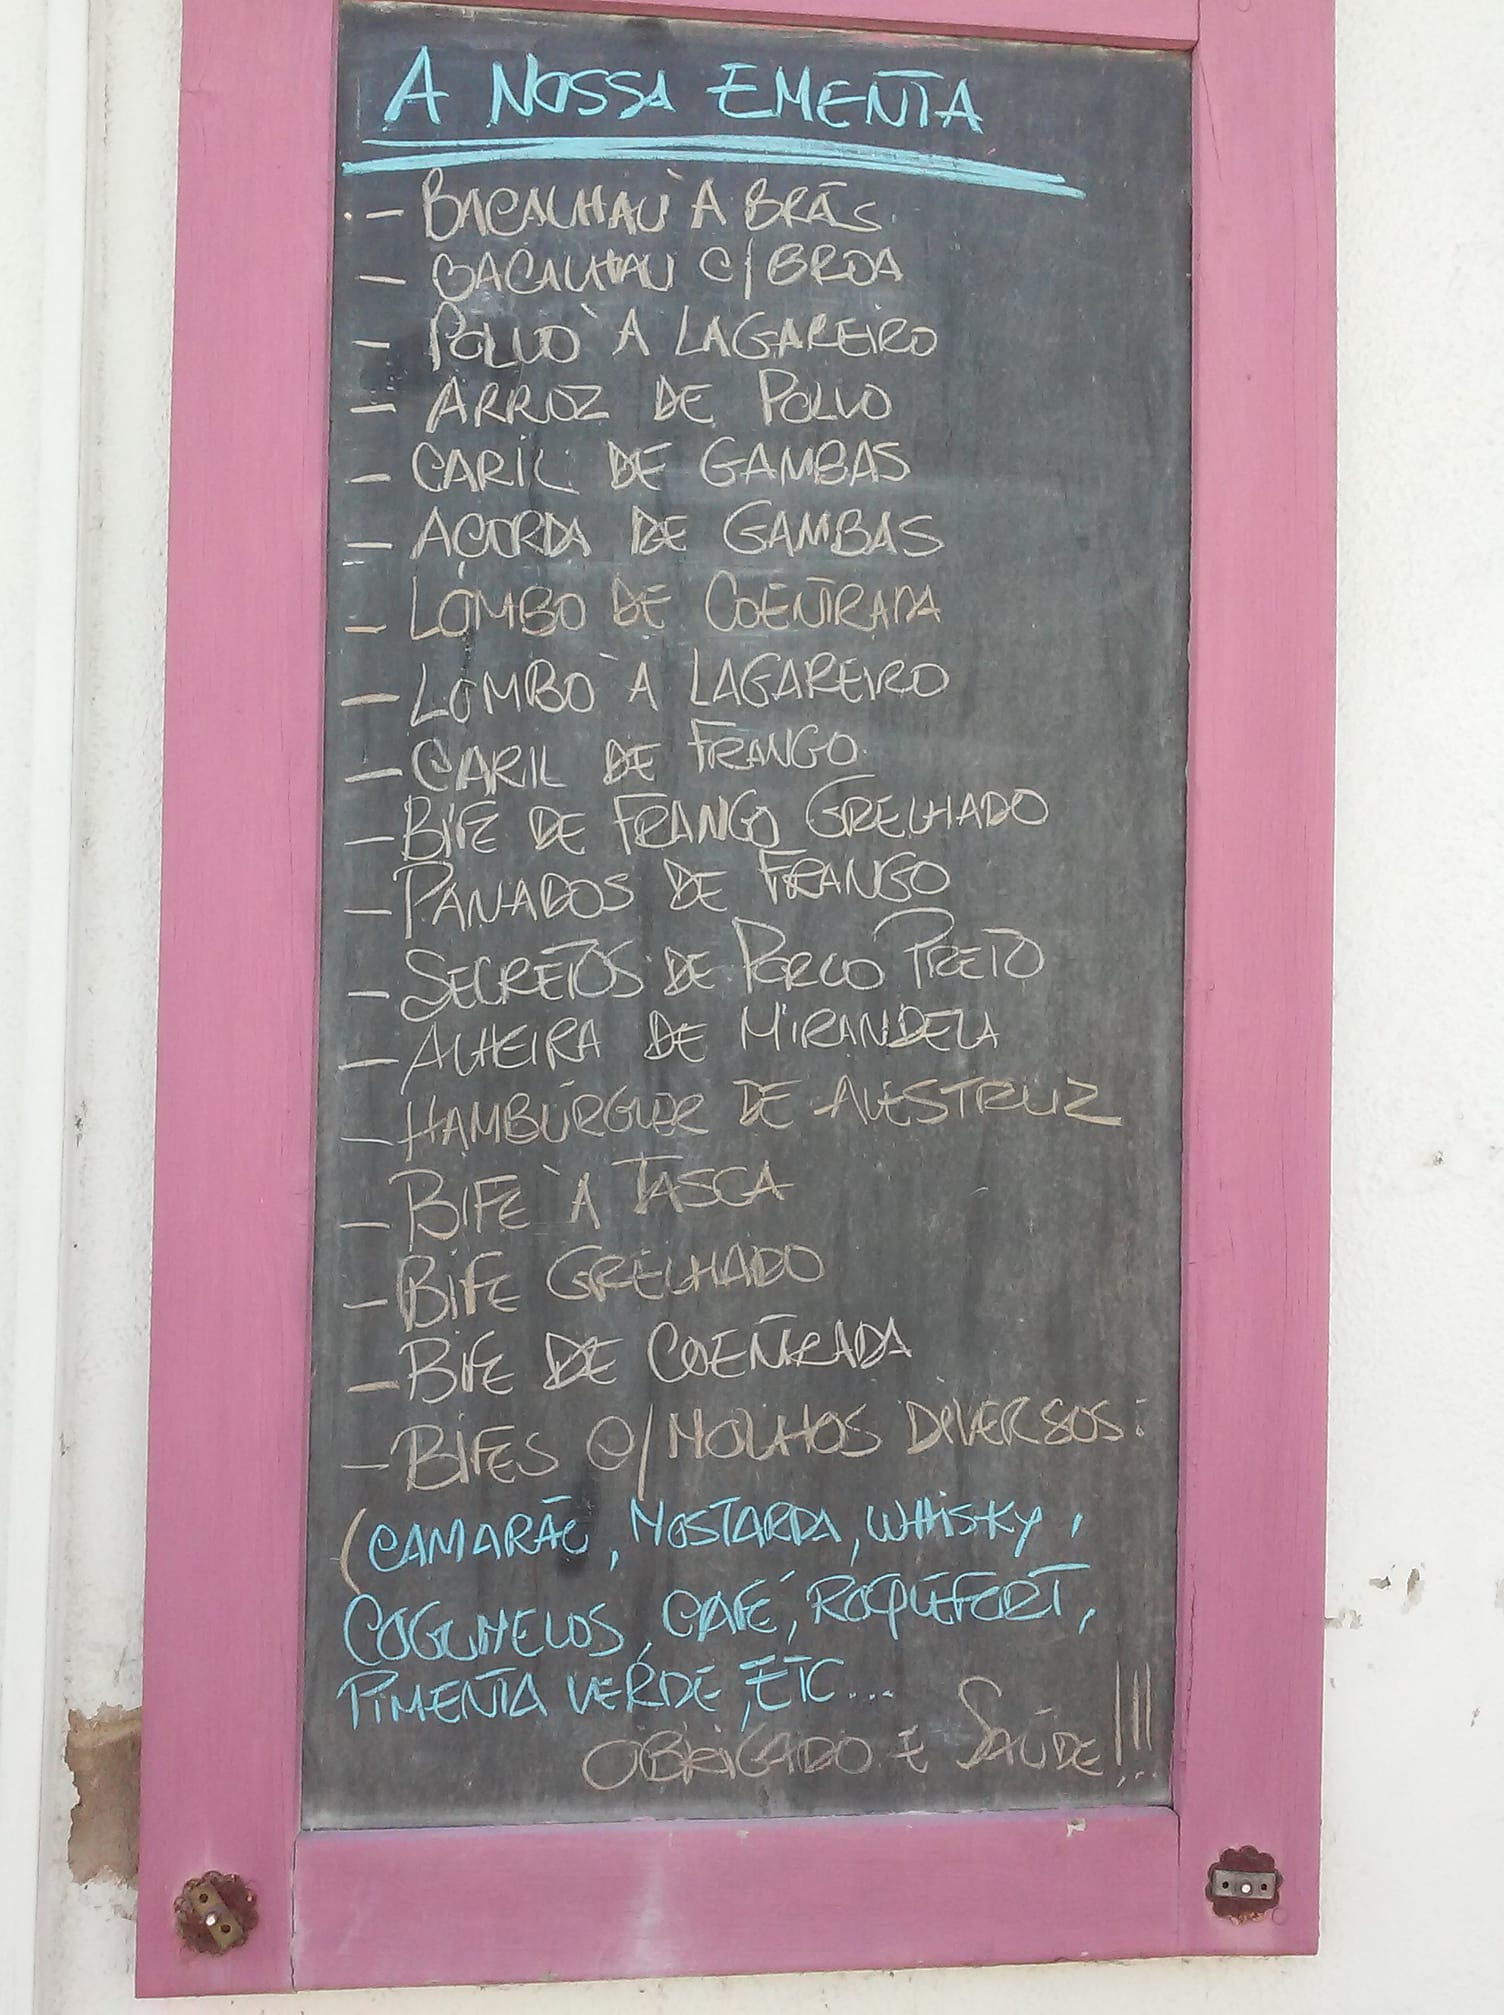 A NOSSA EMENTA
- BACALHAU À BRÁS
- BACALHAU C/ BROA
- POLVO À LAGAREIRO
- ARROZ DE POLVO
- CARIL DE GAMBAS
- AÇORDA DE GAMBAS
- LOMBO DE COENTRADA
- LOMBO À LAGAREIRO
- CARIL DE FRANGO
- BIFE DE FRANGO GRELHADO
- PANADOS DE FRANGO
- SECRETOS DE PORCO PRETO
- ALHEIRA DE MIRANDELA
- HAMBÚRGUER DE AVESTRUZ
- BIFE À TASCA
- BIFE GRELHADO
- BIFE DE COENTRADA
- BIFES C/ MOLHOS DIVERSOS:
(CAMARÃO, MOSTARDA, WHISKY,
COGUMELOS, CAFÉ, ROQUEFORT,
PIMENTA VERDE, ETC...
OBRIGADO E SAÚDE!!!